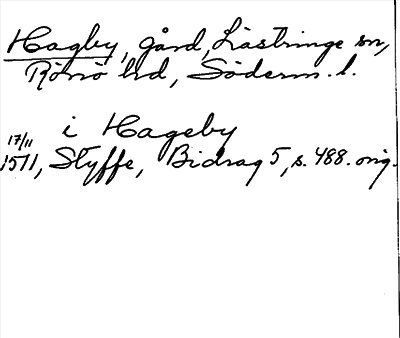 Hagby, gård, Lästringe sn,
Rönö hd, Söderm. l.
i Hageby
17/11
1511, Styffe, Bidrag 5, s. 488. orig.